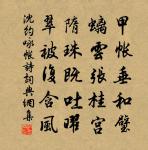 甲帳垂和璧
螭雲張桂宮
隋珠既吐曜
翠被復含風
沈約咏帳詩詞典網集